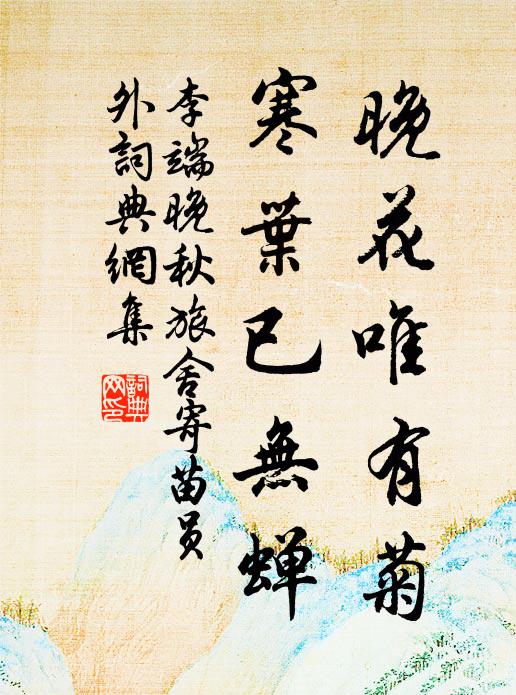 晚花唯有菊
寒葉已無蟬
李端晚秋旅舍寄苗员
外詞典網集
詞典
网印